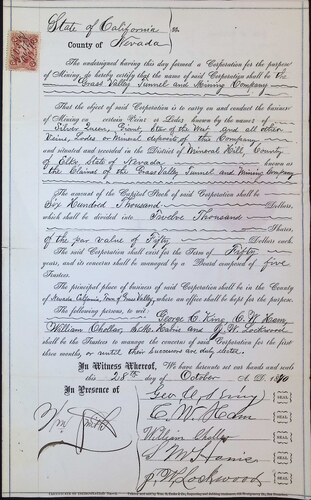 State of California } ss.
County of Nevada
The undersigned having this day formed a Corporation for the purpose
of Mining, do hereby certify that the name of said Corporation shall be The
Grass Valley Tunnel and Mining Company
That the object of said Corporation is to carry on and conduct the business
of Mining on certain Veins or Lodes known by the names of
Silver Queen, Grant, Star of the West and all other
Veins, Lodes or mineral deposits of this Company
and situated and recorded in the District of Mineral Hill, County
of Elko State of Nevada known as
the Claims of the Grass Valley Tunnel and Mining Company
The amount of the Capital Stock of said Corporation shall be
Six Hundred Thousand Dollars,
which shall be divided into Twelve Thousand
Shares,
of the par value of Fifty Dollars each.
The said Corporation shall exist for the Term of Fifty
years, and its concerns shall be managed by a Board composed of five
Trustees.
The principal place of business of said Corporation shall be in the County
of Nevada California, Town of Grass Valley, where an office shall be kept for the purpose.
The following persons, to wit: George C. King, C. W. Ham,
William Chollar, and J. W. Lockwood
shall be the Trustees to manage the concerns of said Corporation for the first
three months, or until their successors are duly elected.
In Witness Whereof, We have hereunto set our hands and seals
this 28th day of October A. D. 1870
In Presence of
Geo. C. King SEAL
Wm Smith
C. W. Ham SEAL
William Chollar SEAL
SEAL
J. W. Lockwood SEAL